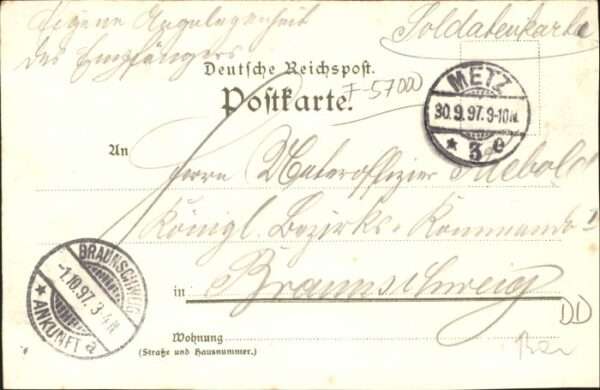 Eigene Angelegenheit
des Empfängers
Soldatenkarte
Deutsche Reichspost.
Postkarte.
F-57000
METZ
30.9.97.9-10N.
* 3 e
An
Herrn Unteroffizier
Königl. Bezirks-Kommando
in Braunschweig
BRAUNSCHWEIG
-1.10.97.3-4N
* ANKUNFT a
DD
Wohnung
(Straße und Hausnummer.)